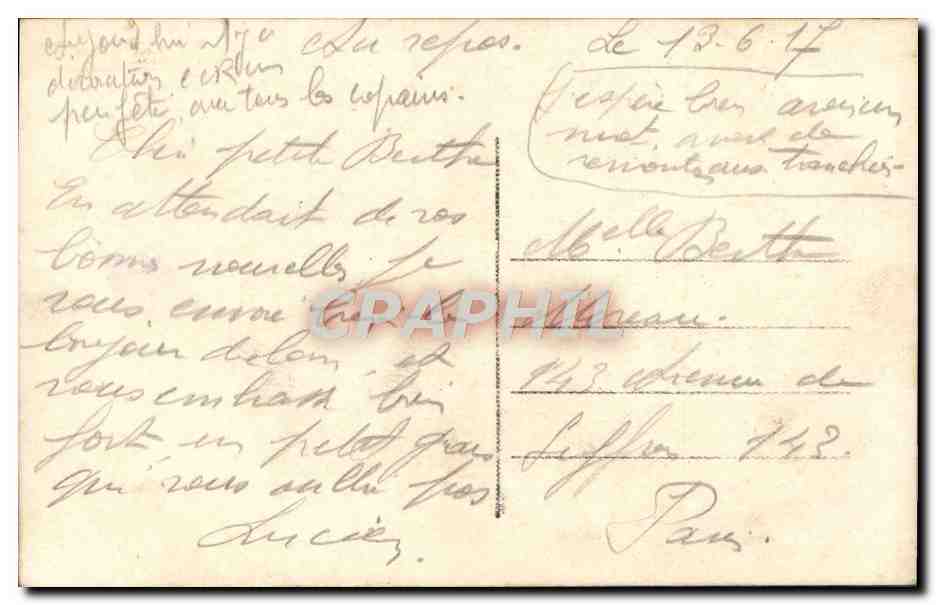 Aujourd'hui il y a
décorations
peu fêté, avec tous les copains.
Au repos. Le 13-6-17
J'espère bien avoir un
mot, avant de
remonter aux tranchées
Chère petite Berthe
En attendait de vos
bonnes nouvelles, je
vous envoie bien le
bonjour de loin, et
vous embrasse bien
fort, en petit gars
qui vous oublie pas
Lucien.
Melle Berthe
Moreau.
143 Avenue de
Suffren 143.
Paris.
CPAPHIL